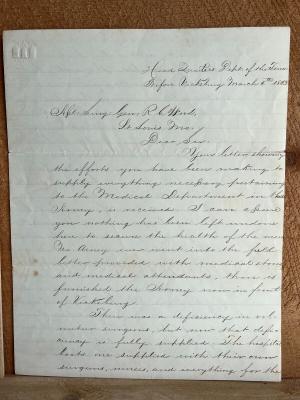 Head Quarters Dept. of the Tenn.
Before Vicksburg March 6th 1863
Asst. Surg. Gen. R. C. Wood,
St Louis Mo.
Dear Sir:
Your letter showing
the efforts you have been making to
supply everything necessary pertaining
to the Medical Department in this
Army, is received. I can assure
you nothing has been left undone
here to secure the health of the men.
No Army ever went into the field
better provided with medical stores
and medical attendants, than is
furnished the Army now in front
of Vicksburg.
There was a deficiency in vol-
unteer surgeons, but now that defi-
ciency is fully supplied. The hospital
boats are supplied with their own
surgeons, nurses, and everything for the